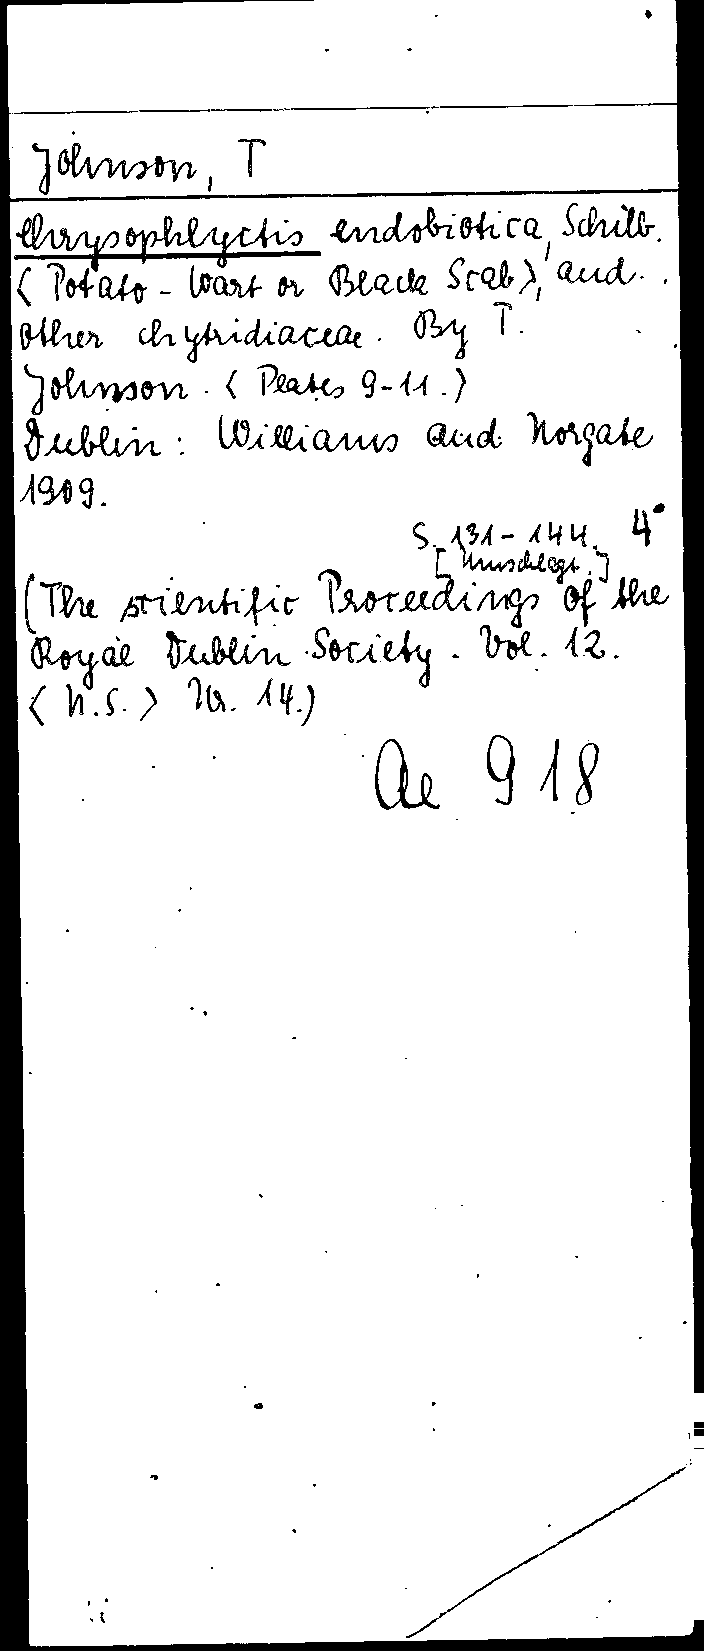 Johnson, T
Chrysophlyctis endobiotica, Schilb.
< Potato - Wart or Black Scab>, and
other chytridiaceae. By T.
Johnson. < Plates 9-11.>
Dublin: Williams and Norgate
1909.
S. 131-144. 4°
[Umschlagt.]
(The scientific Proceedings of the
Royal Dublin Society. Vol. 12.
< N.S. > Nr. 14.)
Ae 918